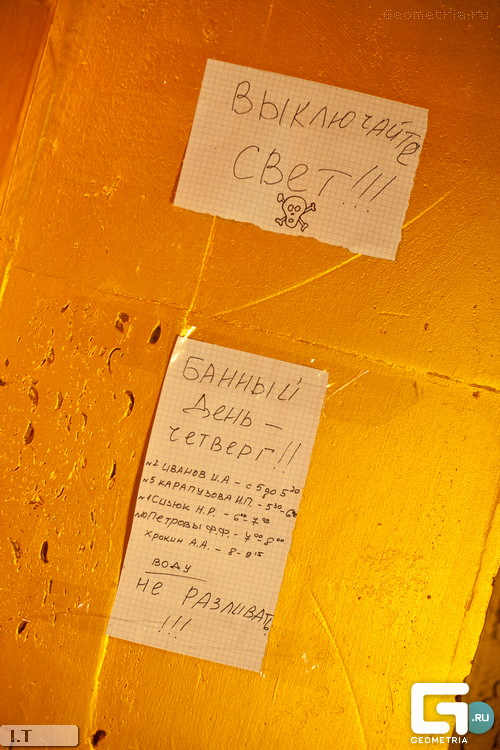 Geometria.ru
ВЫКЛЮЧАЙТЕ
СВЕТ!!!
БАННЫЙ
ДЕНЬ –
ЧЕТВЕРГ!!
№2 ИВАНОВ И.А – с 5 до 5³⁰
№5 КАРАПУЗОВА И.П. – 5³⁰–6⁰⁰
№1 СИЗЮК Н.Р. – 6⁰⁰–7⁰⁰
№10 ПЕТРОВЫ Ф.Ф. – 7⁰⁰–8⁰⁰
ХРОКИН А.А. – 8–8¹⁵
ВОДУ
НЕ РАЗЛИВАТЬ
!!!
I.T
G .RU
GEOMETRIA